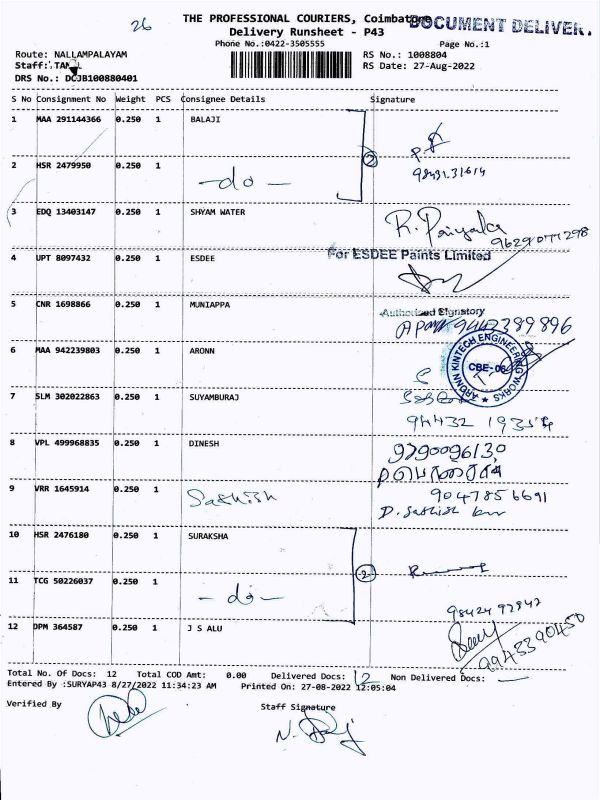 26
THE PROFESSIONAL COURIERS, Coimbatore
DOCUMENT DELIVER.
Delivery Runsheet - P43
Phone No.:0422-3505555 Page No.:1
Route: NALLAMPALAYAM RS No.: 1008804
Staff: RS Date: 27-Aug-2022
DRS No.: DCJB100880401
S No Consignment No Weight PCS Consignee Details Signature
1 MAA 291144366 0.250 1 BALAJI
2 HSR 2479950 0.250 1 -do- 2 98431 31614
3 EDQ 13403147 0.250 1 SHYAM WATER R. 9629077298
4 UPT 8097432 0.250 1 ESDEE For ESDEE Paints Limited
Authorised Signatory
5 CNR 1698866 0.250 1 MUNIAPPA 9442389896
6 MAA 942239803 0.250 1 ARONN ARONN KINTECH ENGINEERING WORKS CBE-06
7 SLM 302022863 0.250 1 SUYAMBURAJ 94432
8 VPL 499968835 0.250 1 DINESH 9790096130
9 VRR 1645914 0.250 1 Sathish 9047856691
D. Sathish
10 HSR 2476180 0.250 1 SURAKSHA
11 TCG 50226037 0.250 1 -do- 2
9842497847
12 DPM 364587 0.250 1 J S ALU 9943390450
Total No. Of Docs: 12 Total COD Amt: 0.00 Delivered Docs: 12 Non Delivered Docs: —
Entered By :SURYAP43 8/27/2022 11:34:23 AM Printed On: 27-08-2022 12:05:04
Verified By Staff Signature